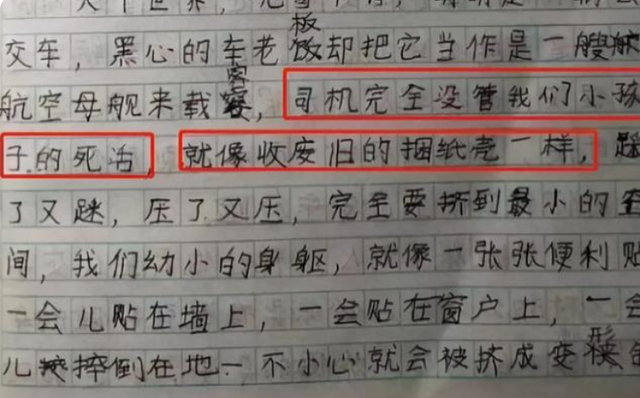 交车，黑心的车老板却把它当作是一艘航
航空母舰来载客，司机完全没管我们小孩
子的死活，就像收废旧的捆纸壳一样，踩
了又跺，压了又压，完全要挤到最小的空
间，我们幼小的身躯，就像一张张便利贴
一会儿贴在墙上，一会贴在窗户上，一会
儿摔倒在地一不小心就会被挤成变形